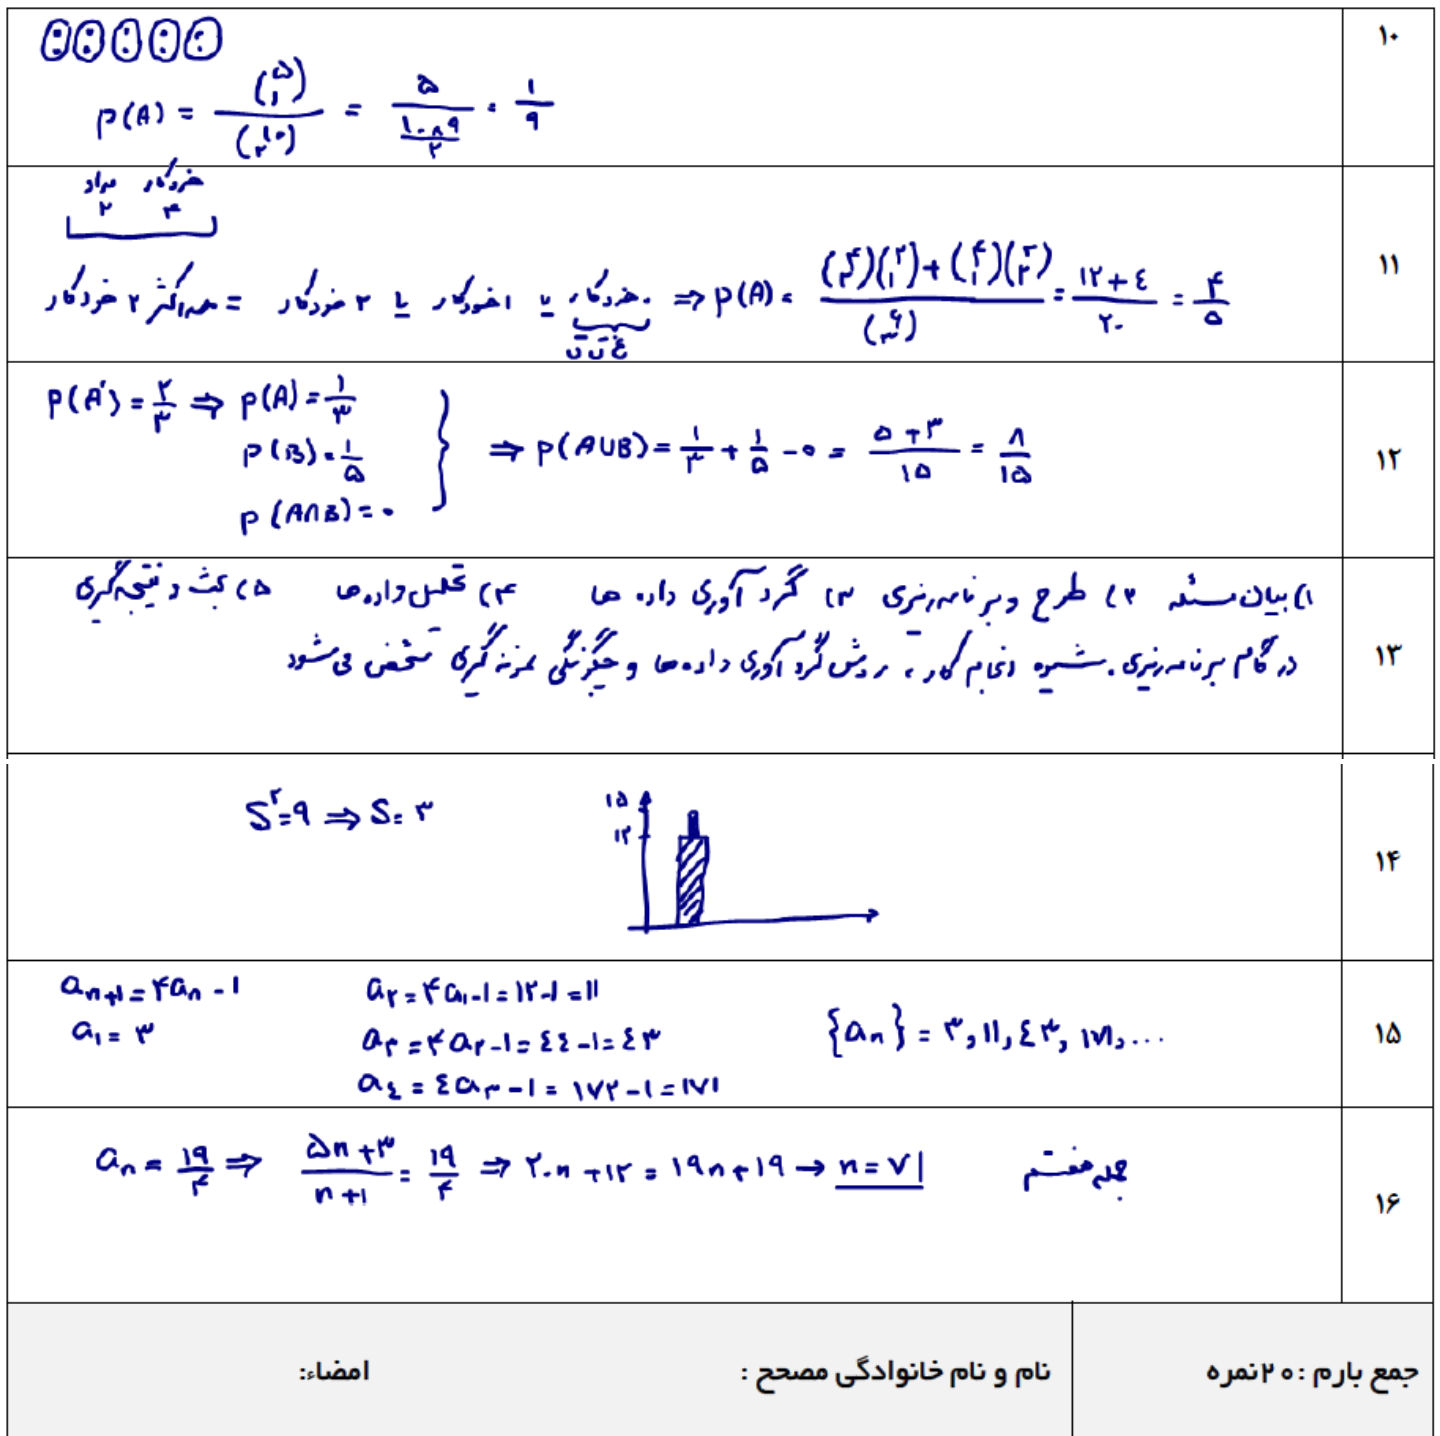 ۱۰
p(A) = (۵ ۱) / (۱۰ ۲) = ۵ / (۱۰×۹ / ۲) = ۱/۹
۱۱
مداد خودکار
۲ ۴
حداکثر ۲ خودکار = ۲ خودکار یا ۱خودکار یا ۰خودکار ⇒ p(A) = ((۴ ۲)(۲ ۱) + (۴ ۱)(۲ ۲)) / (۶ ۳) = (۱۲+۴)/۲۰ = ۴/۵
غ ق ق
۱۲
p(A') = ۲/۳ ⇒ p(A) = ۱/۳
p(B) = ۱/۵
p(A∩B) = ۰
⇒ p(A∪B) = ۱/۳ + ۱/۵ - ۰ = (۵+۳)/۱۵ = ۸/۱۵
۱۳
۱) بیان مسئله ۲) طرح و برنامه ریزی ۳) گردآوری داده ها ۴) تحلیل داده ها ۵) بحث و نتیجه گیری
در گام برنامه ریزی، شیوه انجام کار، روش گردآوری داده ها و چگونگی نمونه گیری مشخص می شود
۱۴
S² = ۹ ⇒ S = ۳
۱۵
۱۲
۱۵
aₙ₊₁ = ۴aₙ - ۱
a₁ = ۳
a₂ = ۴a₁ - ۱ = ۱۲ - ۱ = ۱۱
a₃ = ۴a₂ - ۱ = ۴۴ - ۱ = ۴۳
a₄ = ۴a₃ - ۱ = ۱۷۲ - ۱ = ۱۷۱
{aₙ} = ۳, ۱۱, ۴۳, ۱۷۱, ...
۱۶
aₙ = ۱۹/۴ ⇒ (۵n+۳)/(n+۱) = ۱۹/۴ ⇒ ۲۰n + ۱۲ = ۱۹n + ۱۹ → n = ۷ جمله هفتم
جمع بارم : ۲۰ نمره
نام و نام خانوادگی مصحح :
امضاء: